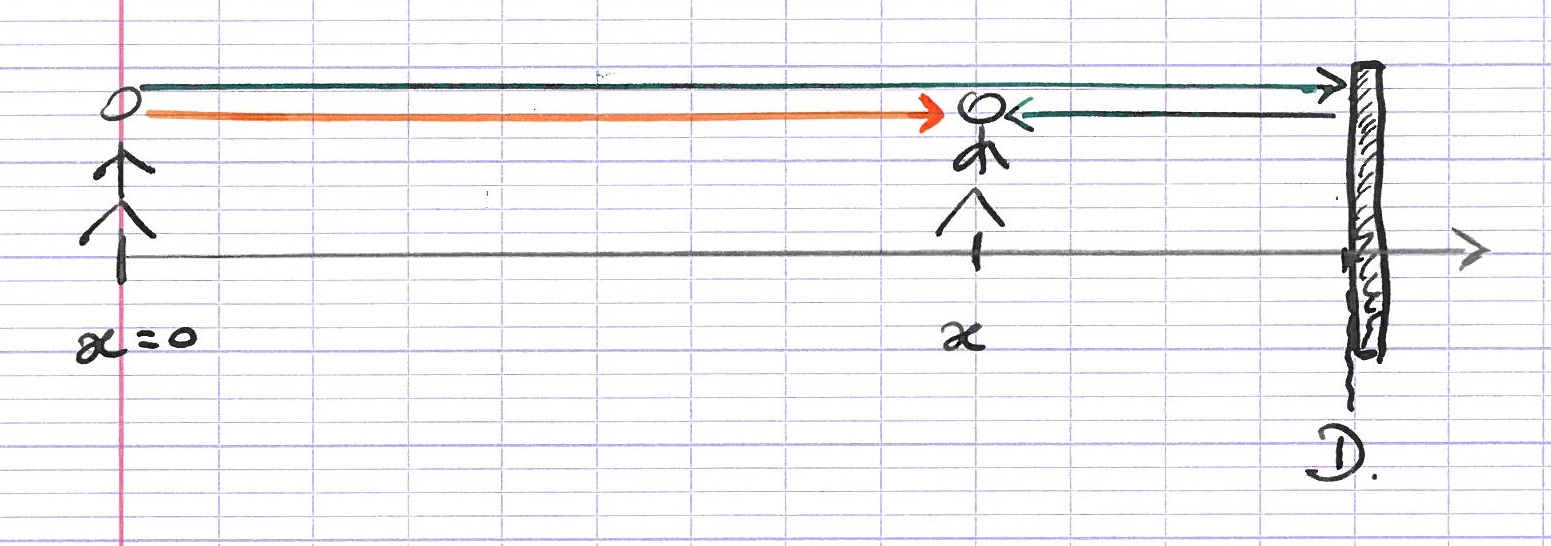 x = 0
x
D.